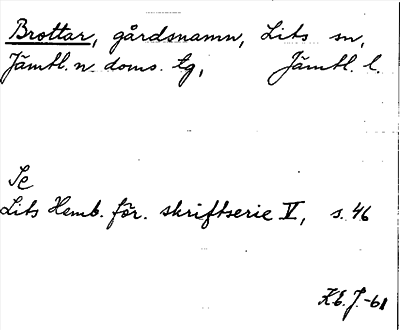 Brottar, gårdsnamn, Lits sn,
Jämtl. n. doms. tg, Jämtl. l.
Se
Lits Hemb. för. skriftserie V, s. 46
K.E.J.-61